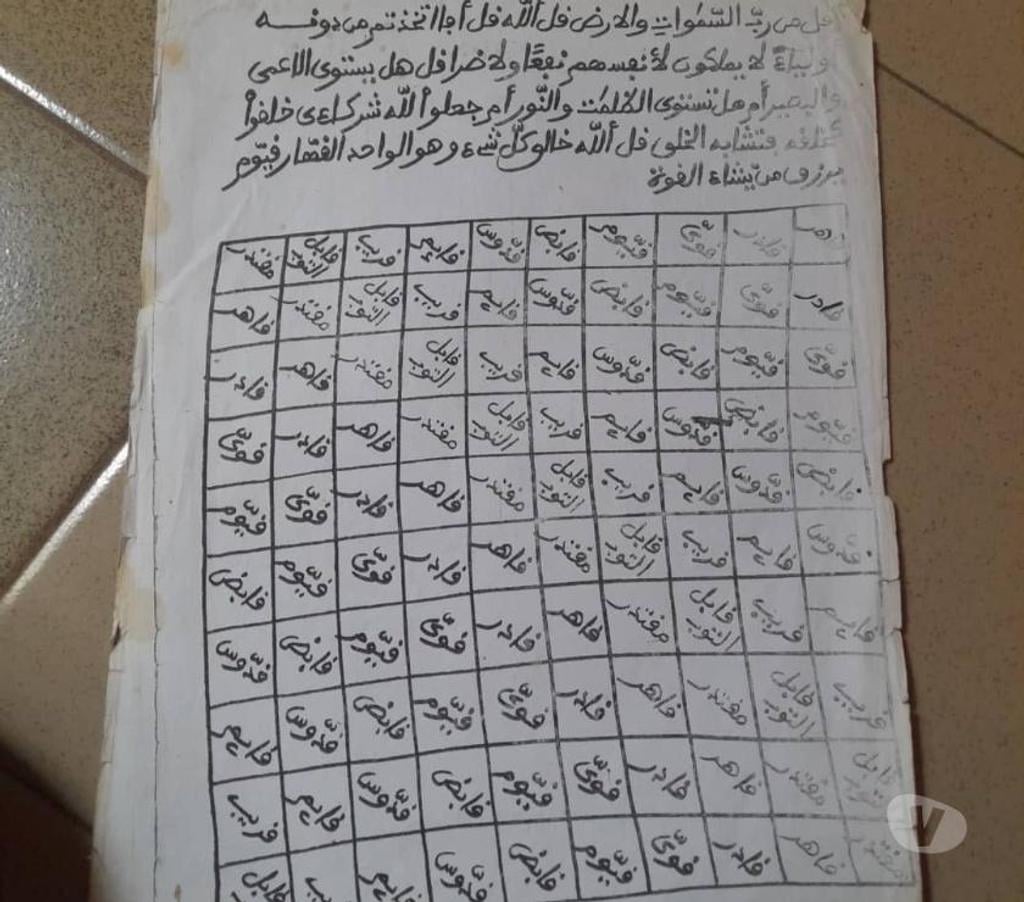 قل من ربّ السّمٰوات والارض قل ألله قل أفاتخذتم من دونه
أولياءَ لا يملكون لأنفسهم نفعًا ولا ضرا قل هل يستوى الاعمى
والبصير أم هل تستوى الظلمٰت والنّور أم جعلوا لله شركاءى خلقوا
كخلقه فتشابه الخلق قل ألله خالق كلّ شىء وهو الواحد القهّار قيّوم
يرزق من يّشاء القوة
قاهر قادر قوىّ قيّوم قابض قدّوس قايم قريب قابل التوب مقتدر
قادر قوىّ قيّوم قابض قدّوس قايم قريب قابل التوب مقتدر قاهر
قوىّ قيّوم قابض قدّوس قايم قريب قابل التوب مقتدر قاهر قادر
قيّوم قابض قدّوس قايم قريب قابل التوب مقتدر قاهر قادر قوىّ
قابض قدّوس قايم قريب قابل التوب مقتدر قاهر قادر قوىّ قيّوم
قدّوس قايم قريب قابل التوب مقتدر قاهر قادر قوىّ قيّوم قابض
قايم قريب قابل التوب مقتدر قاهر قادر قوىّ قيّوم قابض قدّوس
قريب قابل التوب مقتدر قاهر قادر قوىّ قيّوم قابض قدّوس قايم
قابل التوب مقتدر قاهر قادر قوىّ قيّوم قابض قدّوس قايم قريب
مقتدر قاهر قادر قوىّ قيّوم قابض قدّوس قايم قريب قابل